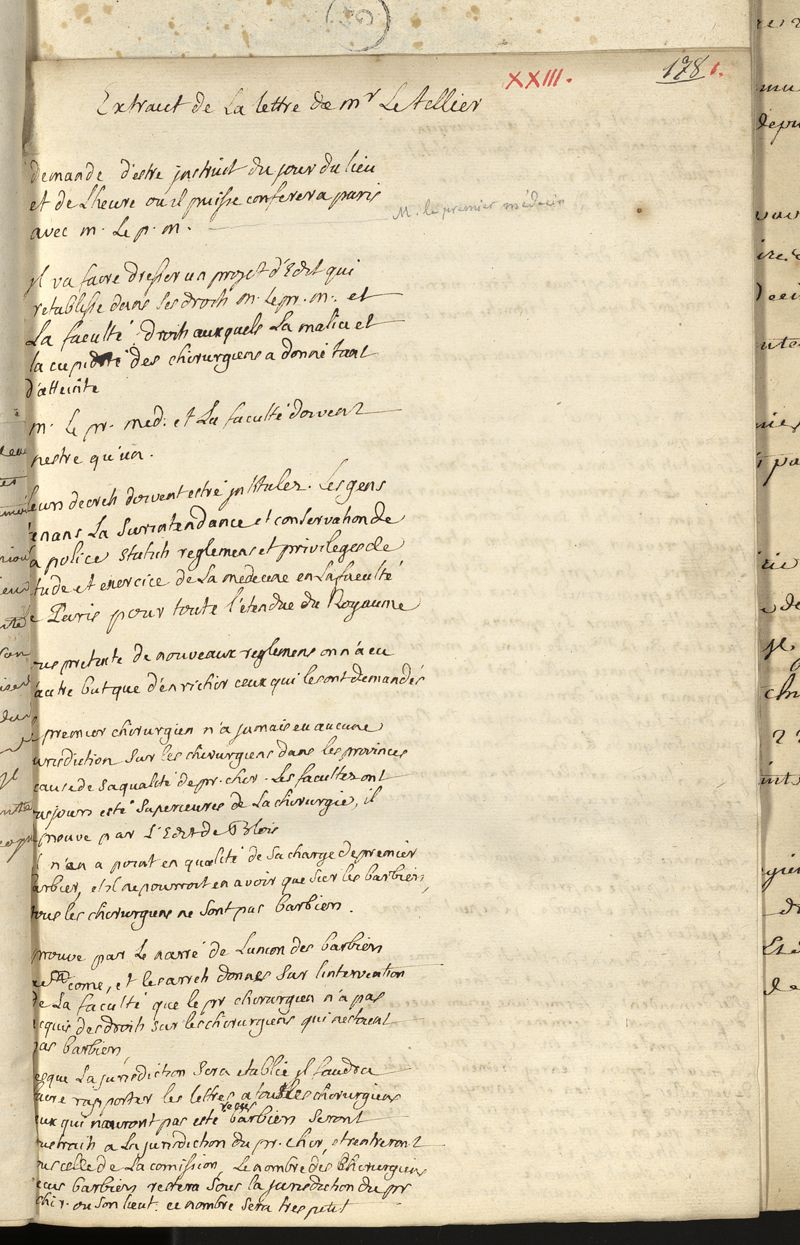 XXIII.
178 1.
Extrait de La lettre de mr Le tellier
demande d'estre jnstruit du jour du lieu
et de Lheure ou il puisse conferer a paris
avec m. Le p. m.
M. le premier médecin
jl va faire dresser un projet d'Edit qui
retablisse dans ses droits m. Le pr. m. et
La faculté droits auxquels La malice et
la cupidité des chirurgiens a donné tant
d'atteinte
m. Le pr. med. et La faculté doivent
nestre qu'un.
leurs decrets doivent estre jntitulez. Les gens
tenans La Surintendance et conservation de
la police statuts reglemens et privileges de
tude et exercice de La medecine en La faculté
de Paris pour toute l'etendue du Royaume
ous pretexte de nouveaux reglemens on n'a eu
autre but que d'enrichir ceux qui les ont demandés
e premier chirurgien n'a jamais eu aucune
urisdiction sur les chirurgiens dans les provinces
cause de sa qualité de pr. chir. Les facultez ont
usjours esté Superieures de La chirurgie, il
prouve par L'Edit de Blois
jl n'en a point en qualité de sa charge de premier
arbier, et il ne pourroit en avoir que sur les barbiers,
tous les chirurgiens ne sont pas barbiers.
prouve par Le narré de Lunion des barbiers
et St come, et les arrets donnes sur l'intervention
de La faculté que le pr chirurgien n'a pas
cquis des droits sur les chirurgiens qui nestoient
pas barbiers
sque La jurisdiction sera etablie jl faudra
aire rapporter les lettres a tous les chirurgiens
eux qui nauront pas esté receus barbiers seront
ustraits a La jurisdiction du pr. chir. et rentreront
ous celle de La comission, Le nombre des chirurgiens
eceus barbiers restera sous la jurisdiction du pr
chir. ou son lieut. ce nombre sera tres petit